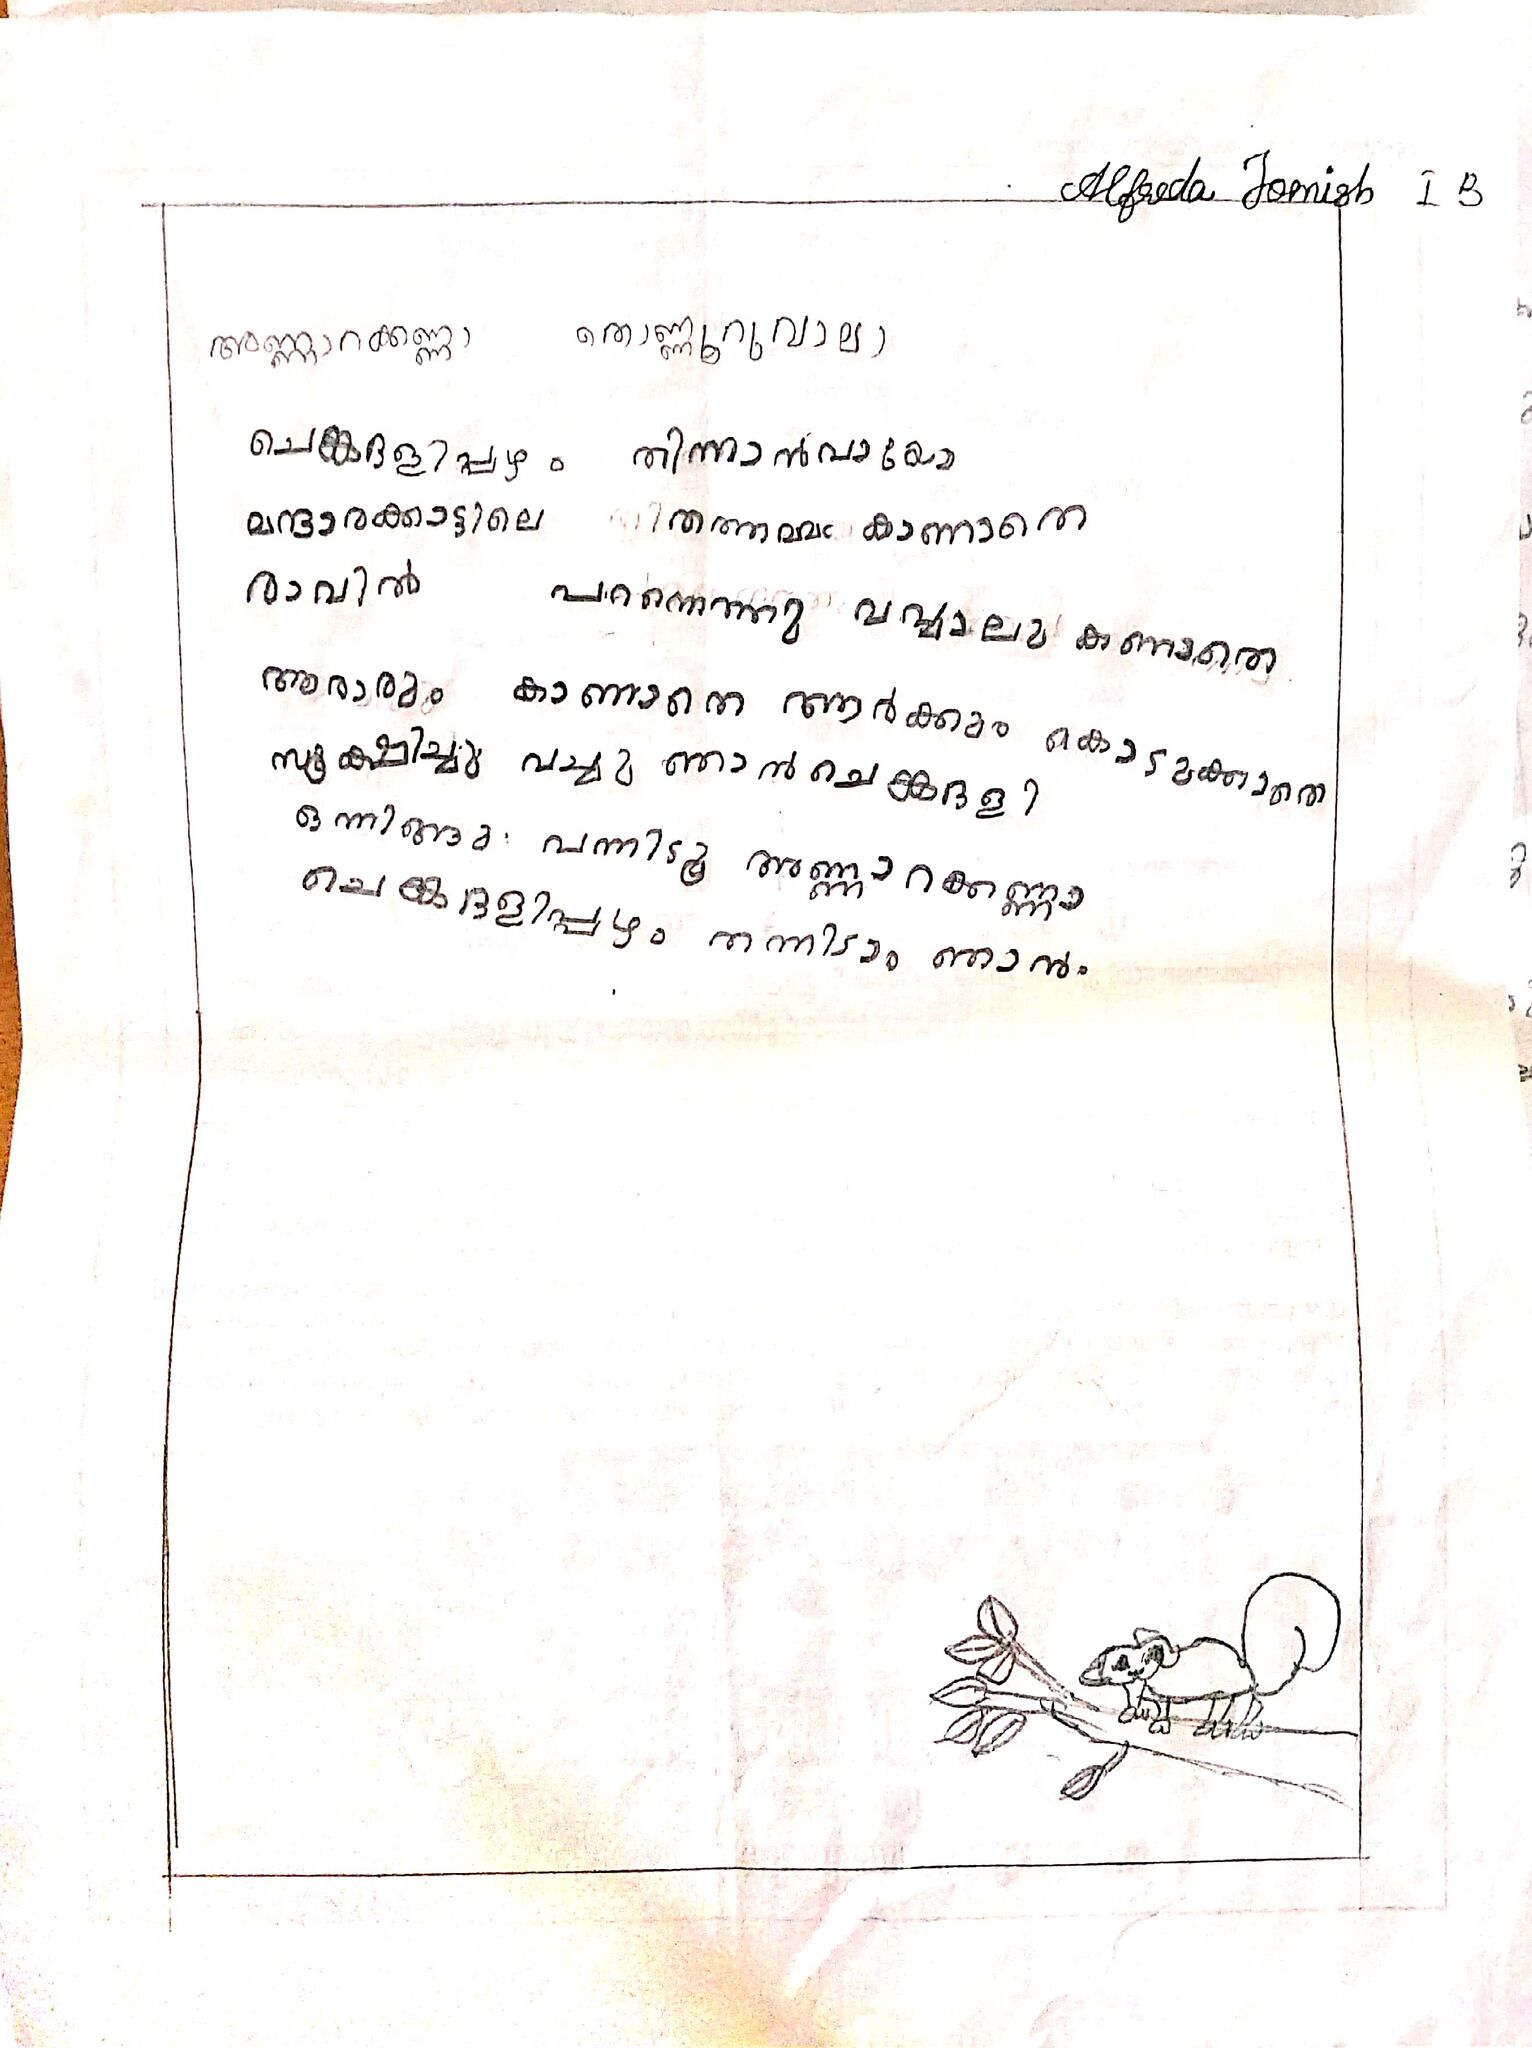 Alfreda Jomish I B
അണ്ണാറക്കണ്ണാ തൊണ്ണൂറുവാലാ
ചെങ്കദളിപ്പഴം തിന്നാൻവായോ
മന്ദാരക്കാട്ടിലെ കാണാതെ
രാവിൽ പറന്നെത്തു കണാതെ
ആരാരും കാണാതെ ആർക്കും കൊടുക്കാതെ
സൂക്ഷിച്ചു വച്ചു ഞാൻ ചെങ്കദളി
ഒന്നിങ്ങു വന്നിടൂ അണ്ണാറക്കണ്ണാ
ചെങ്കദളിപ്പഴം തന്നിടാം ഞാൻ.